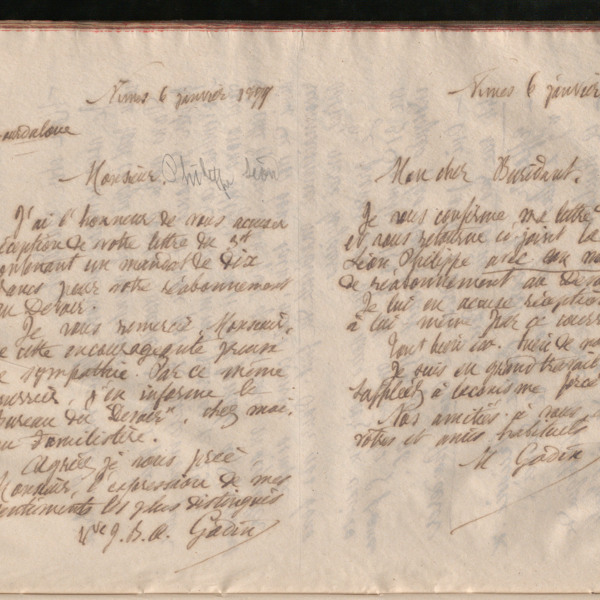 Nimes 6 janvier 1891
Monsieur Philippe Léon
J'ai l'honneur de vous accuser
réception de votre lettre du
contenant un mandat de dix
francs pour votre réabonnement
au Devoir.
Je vous remercie, Monsieur,
de cette encourageante preuve
de sympathie. Par ce même
courrier, j'en informe le
bureau du "Devoir", chez moi,
au Familistère.
Agréez je vous prie
Monsieur, l'expression de mes
sentiments les plus distingués
Vve J. B. A. Godin
Nimes 6 janvier
Mon cher Buridant.
Je vous confirme ma lettre
et vous retourne ci-joint la
Léon Philippe avec son
de réabonnement au Devoir
Je lui en accuse réception
à lui même par ce courrier
Tout bien ici. Rien de
Je suis en grand travail
suppléez à laconisme
Nos amitiés à vous
vôtres et amis habituels
M Godin